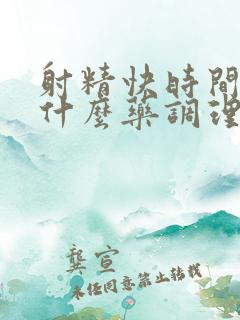 射精快時間
什麼藥調理
龔宣
未任同意禁止转载